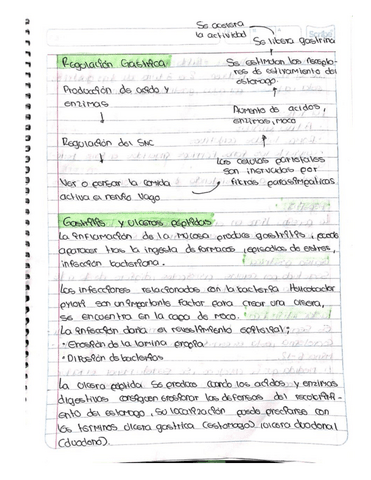 Se acelera
la actividad
Se libera gastrina
Regulación Gástrica
Se estimulan los receptores
de estiramiento del
estomago.
Producción de acido y
enzimas
Aumento de acidos,
enzimas, moco
Regulación del SNC
Las celulas parietales
son inervadas por
fibras parasimpaticas
Ver o pensar la comida
activa el nervio Vago
Gastritis y ulceras pépticas
La inflamación de la mucosa produce gastritis, puede
aparecer tras la ingesta de farmacos, episodios de estres,
infección bacteriana.
Las infecciones relacionadas con la bacteria Helicobacter
pylori son un importante factor para crear una ulcera,
se encuentra en la capa de moco.
La infección daña el revestimiento epitelial;
• Erosión de la lamina propia
• Difusión de bacterias
La ulcera péptida se produce cuando los acidos y enzimas
digestivas consiguen las defensas del
ento del estomago, su localización puede precisarse con
los terminos ulcera gastrica (estomago) ulcera duodenal
(duodeno).